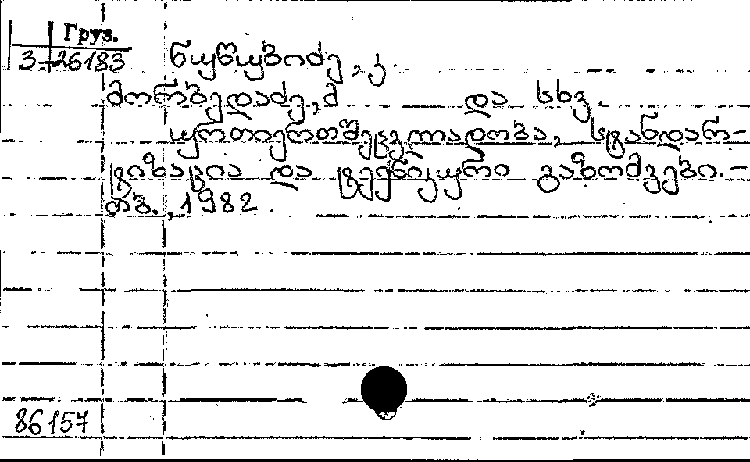 Груз.
3-26183
წულუბიძე, კ.
მორბედაძე, მ და სხვ.
ურთიერთშეცვლადობა, სტანდარ-
ტიზაცია და ტექნიკური გაზომვები.-
თბ., 1982.
86157